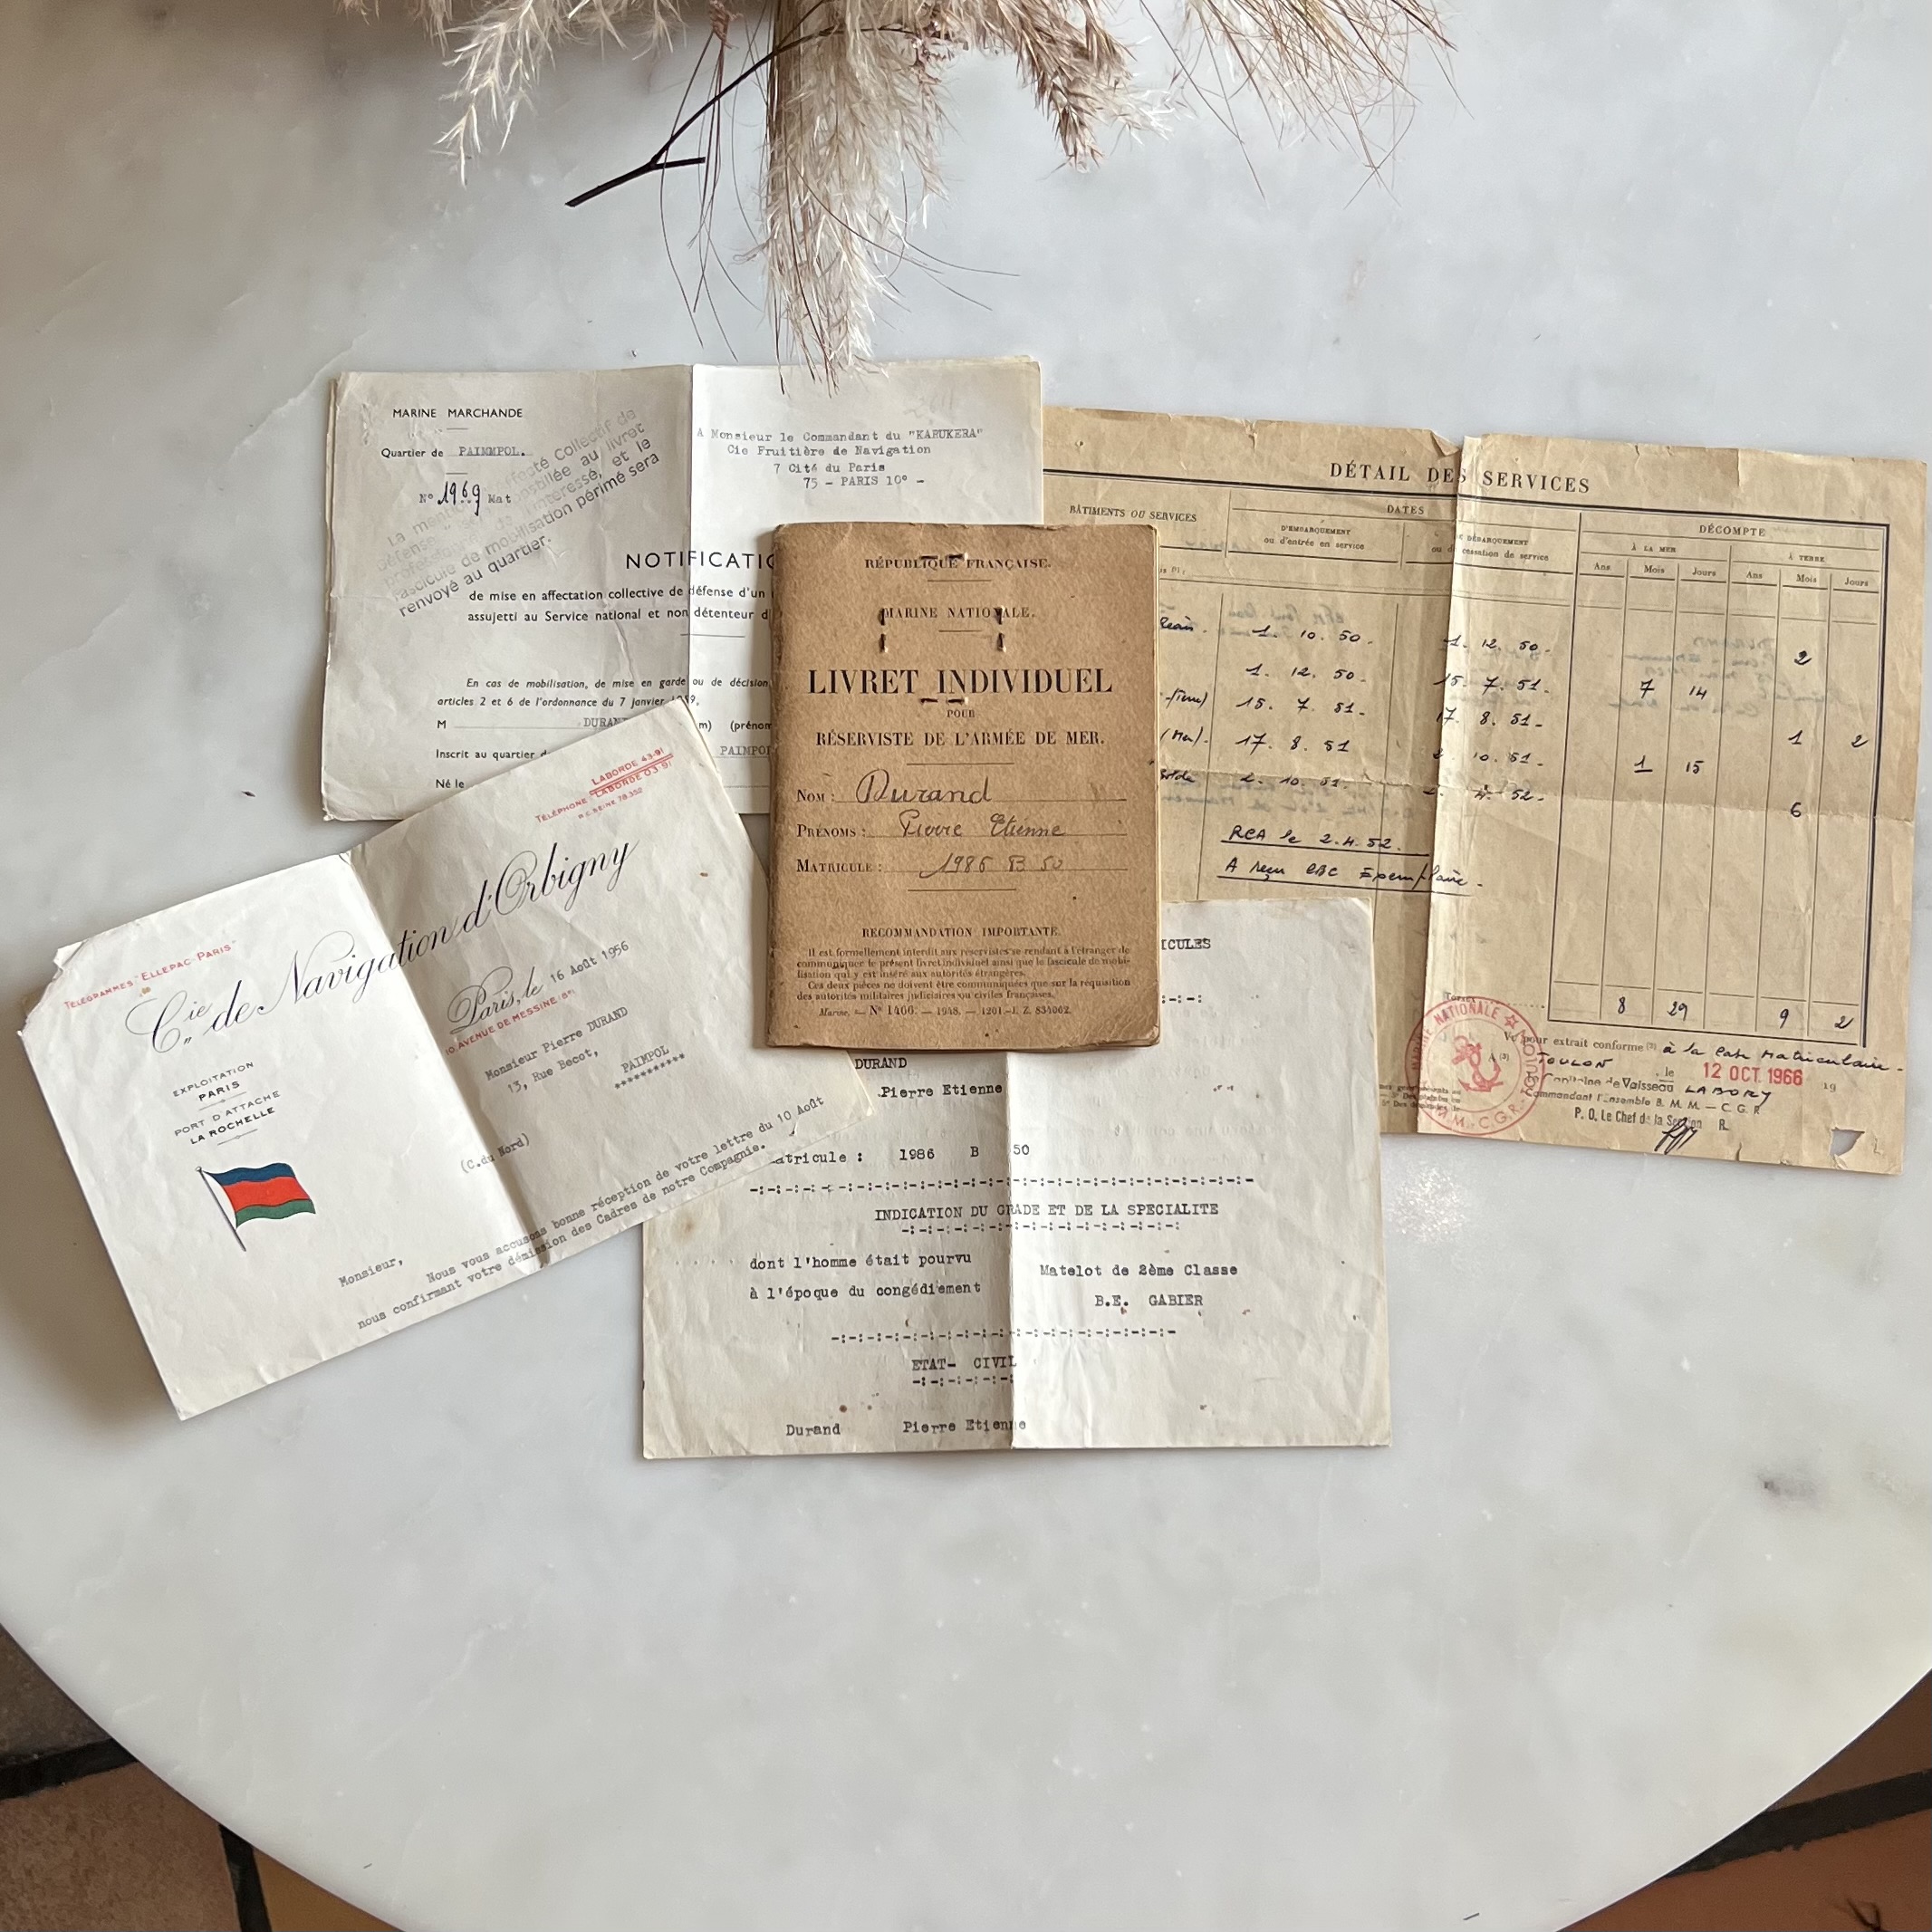 MARINE MARCHANDE
Quartier de PAIMMPOL.
N° 1969 Mat
La
défense
fecté Collectif de
onsbilée au livret
de l'interessé, et le
fascicule de mobilisation périmé sera
renvoyé au quartier.
A Monsieur le Commandant du "KARUKERA"
Cie Fruitière de Navigation
7 Cité du Paris
75 - PARIS 10° -
NOTIFICATIO
de mise en affectation collective de défense d'un
assujetti au Service national et non détenteur d
En cas de mobilisation, de mise en garde ou de décision,
articles 2 et 6 de l'ordonnance du 7 janvier 1959,
M DURAN m) (prénom
Inscrit au quartier d PAIMPOL
Né le
DÉTAIL DES SERVICES
BÂTIMENTS OU SERVICES
DATES
D'EMBARQUEMENT
ou d'entrée en service
DÉBARQUEMENT
ou de cessation de service
DÉCOMPTE
À LA MER
À TERRE
Ans Mois Jours Ans Mois Jours
1. 10. 50. 1. 12. 50. 2
1. 12. 50. 15. 7. 51. 7 14
15. 7. 51. 17. 8. 51. 1 2
17. 8. 51 2. 10. 51. 1 15
2. 10. 51. 2. 4. 52. 6
RCA le 2.4.52.
A reçu CBC Exemplaire.
8 29 9 2
Vu pour extrait conforme (2) à la Cate Matriculaire.
A (3) TOULON, le 12 OCT 1966 19
Capitaine de Vaisseau LABORY
Commandant l'Ensemble B. M. M. — C. G. R.
P. O. Le Chef de la Section R.
MARINE NATIONALE
TOULON
RÉPUBLIQUE FRANÇAISE.
MARINE NATIONALE.
LIVRET INDIVIDUEL
POUR
RÉSERVISTE DE L'ARMÉE DE MER.
NOM : Durand
PRÉNOMS : Pierre Etienne
MATRICULE : 1986 B 50
RECOMMANDATION IMPORTANTE.
Il est formellement interdit aux réservistes se rendant à l'étranger de
communiquer le présent livret individuel ainsi que le fascicule de mobi-
lisation qui y est inséré aux autorités étrangères.
Ces deux pièces ne doivent être communiquées que sur la réquisition
des autorités militaires judiciaires ou civiles françaises.
Marine. — N° 1466. — 1948. — 1201.-J. Z. 834062.
TÉLÉGRAMMES "ELLEPAC-PARIS"
LABORDE 43-91
TÉLÉPHONE : LABORDE 03-91
R.C. SEINE 78.352
Cie de Navigation d'Orbigny
Paris, le 16 Août 1956
10, AVENUE DE MESSINE (8e)
EXPLOITATION
PARIS
PORT D'ATTACHE
LA ROCHELLE
Monsieur Pierre DURAND
13, Rue Becot,
PAIMPOL
***********
(C.du Nord)
Monsieur,
Nous vous accusons bonne réception de votre lettre du 10 Août
nous confirmant votre démission des Cadres de notre Compagnie.
ICULES
DURAND
Pierre Etienne
atricule : 1986 B 50
INDICATION DU GRADE ET DE LA SPECIALITE
dont l'homme était pourvu
à l'époque du congédiement
Matelot de 2ème Classe
B.E. GABIER
ETAT- CIVIL
Durand Pierre Etienne